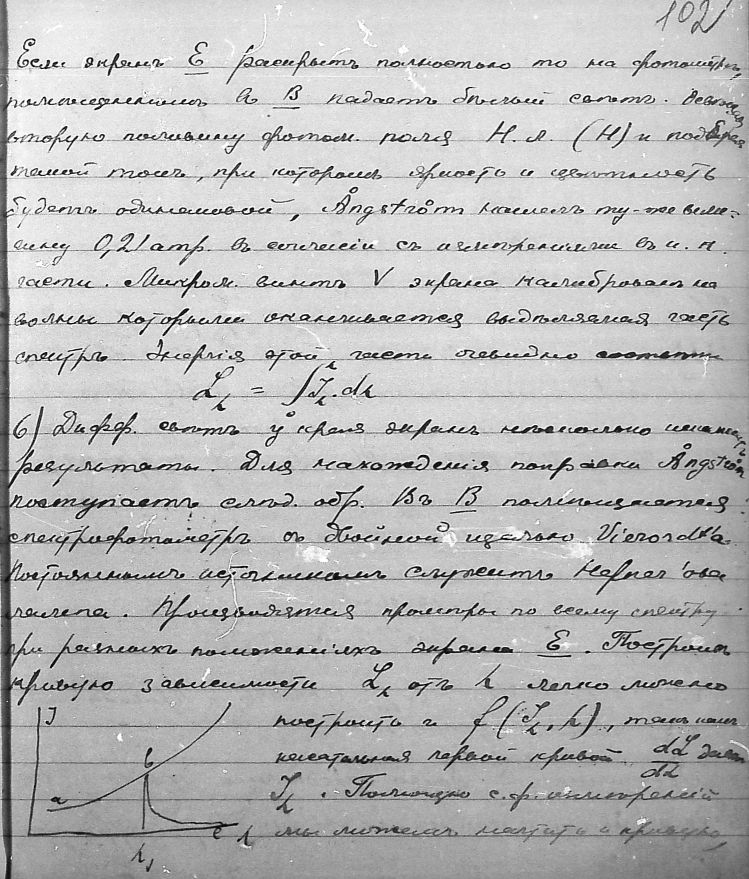 102
Если экранъ E раскрытъ полностью то на фотометръ,
помѣщеннымъ въ B падаетъ бѣлый свѣтъ. Освѣщая
вторую половину фотом. поля Н. л. (H) и подбирая
такой токъ, при которомъ яркость и цвѣтность
будетъ одинаковой, Ångström нашелъ ту-же вели-
чину 0,21 amp. въ согласіи съ измѣреніями въ и. к.
части. Микром. винтъ V экрана калиброванъ на
волны которыми оканчивается выдѣляемая часть
спектръ. Энергія этой части очевидно
L = ∫ J . d
б) Дифф. свѣтъ у края экранъ нѣсколько
результаты. Для нахожденія поправки Ångström
поступаетъ слѣд. обр. Въ B помѣщается
спектрофотометръ съ двойной щелью Vierordt'a
Постояннымъ источникомъ служитъ Hefner'ова
лампа. Производятся промѣры по всему спектру
при разныхъ положеніяхъ экрана E. Построивъ
кривую зависимости L отъ λ легко можно
построить и f (J, λ), такъ какъ
касательная первой кривой даетъ
J. Помощью с. ф. измѣреній
мы можемъ начтить и кривую,
J
a
b
c